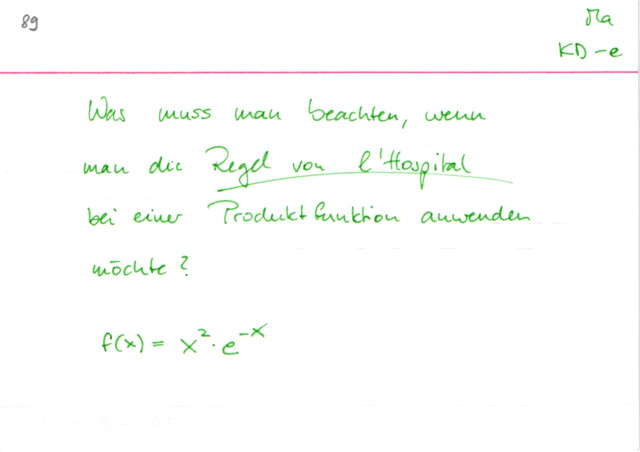 89
Ma
KD-e
Was muss man beachten, wenn
man die Regel von l'Hospital
bei einer Produktfunktion anwenden
möchte?
f(x) = x² · e^-x